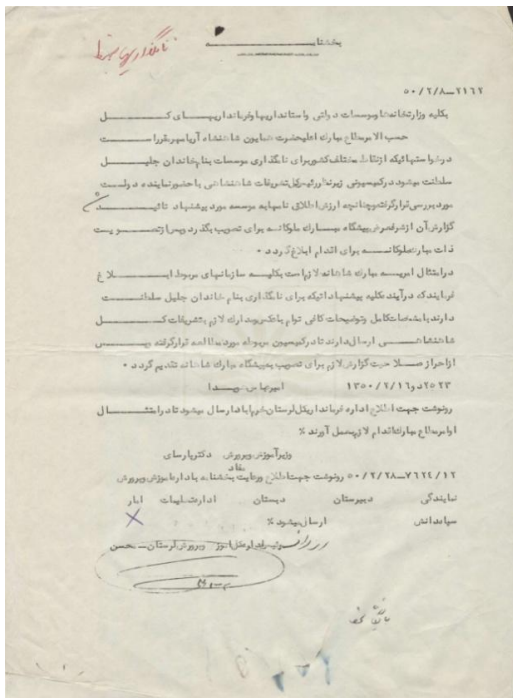 بخشنامه
نامگذاریها ضبط
۵۰/۲/۸-۲۱۶۲
بکلیه وزارتخانه‌ها و موسسات دولتی و استانداریها و فرمانداریهای کل
حسب الامر مطاع مبارک اعلیحضرت همایون شاهنشاه آریامهر مقرر است
درخواستهائیکه از نقاط مختلف کشور برای نامگذاری موسسات بنام خاندان جلیل
سلطنت میشود در کمیسیونی زیر نظر رئیس کل تشریفات شاهنشاهی با حضور نماینده دولت
مورد بررسی قرار گرفته و چنانچه ارزش اطلاق نام به موسسه مورد پیشنهاد تائید
گزارش آن از شرفعرض پیشگاه مبارک ملوکانه برای تصویب بگذرد و پس از تصویب
ذات مبارک ملوکانه برای اقدام ابلاغ گردد .
در امتثال امریه مبارک شاهانه لازم است بکلیه سازمانهای مربوط ابلاغ
فرمایند که در آینده کلیه پیشنهاداتیکه برای نامگذاری بنام خاندان جلیل سلطنت
دارند با مشخصات کامل و توضیحات کافی توام با عکس و مدارک لازم بتشریفات کل
شاهنشاهی ارسال دارند تا در کمیسیون مربوطه مورد مطالعه قرار گرفته و پس
از احراز صلاحیت گزارش لازم برای تصویب به پیشگاه مبارک شاهانه تقدیم گردد .
۱۳۵۰/۲/۱۶ امیرعباس هویدا
رونوشت جهت اطلاع اداره فرمانداریکل لرستان خرم‌اباد ارسال میشود تا در امتثال
اوامر مطاع مبارک اقدام لازم بعمل آورند ٪
وزیر آموزش و پرورش دکتر پارسای
۵۰/۲/۲۸-۷۶۲۴/۱۲ رونوشت جهت اطلاع و رعایت بخشنامه به اداره آموزش و پرورش
نمایندگی دبیرستان دبستان ادار تعلیمات
سپاه دانش ارسال میشود ٪
حسن